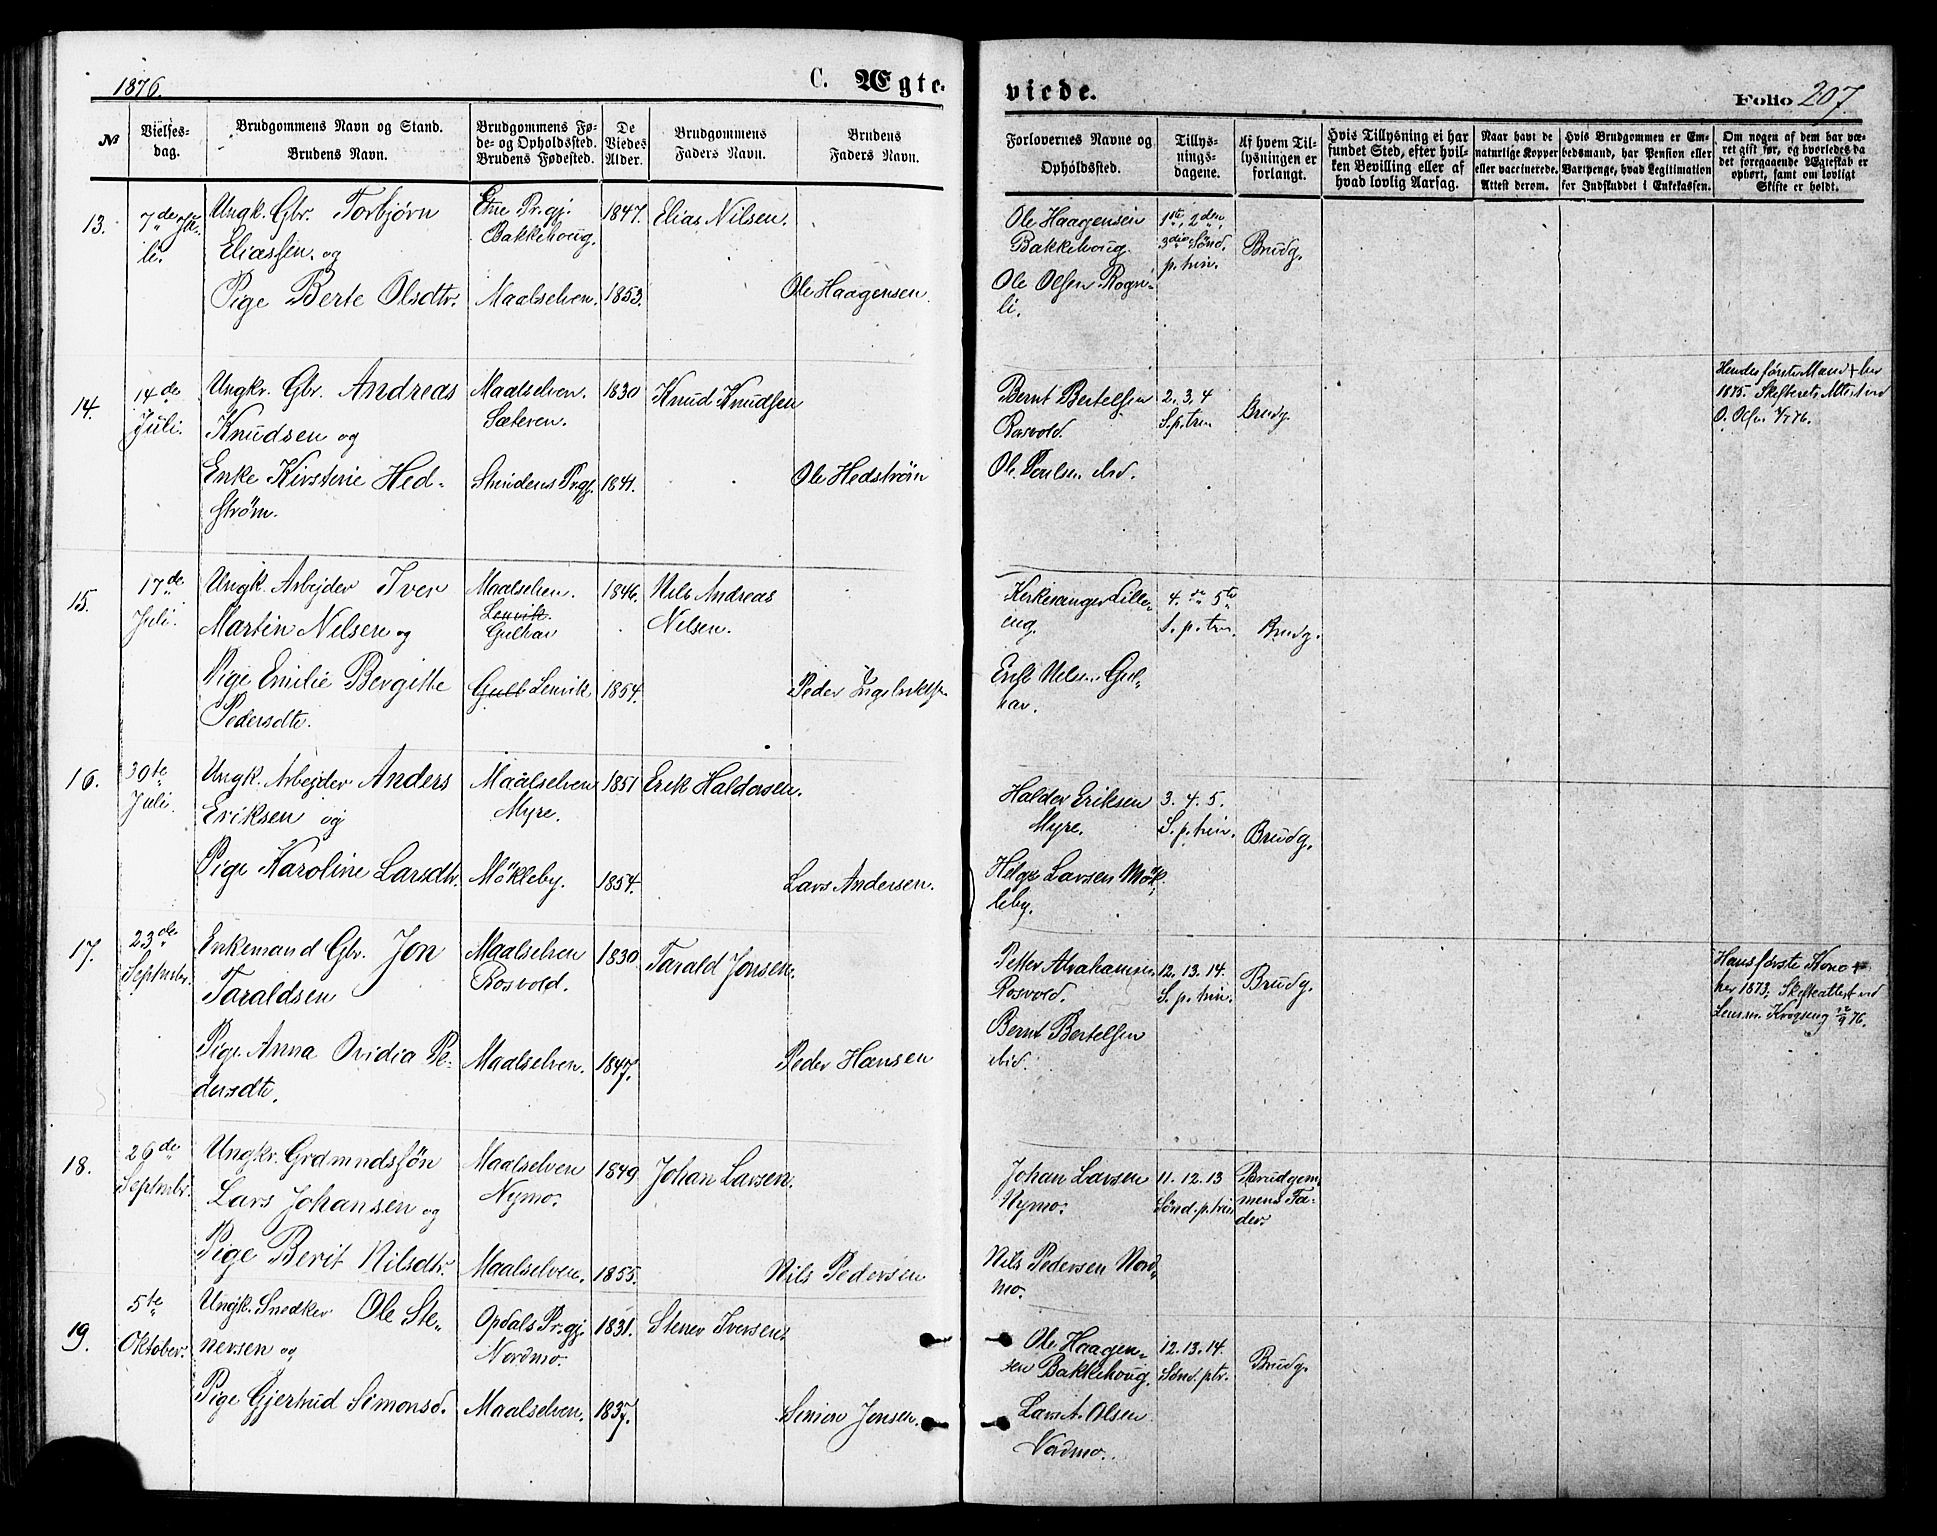 1876.
C. Ægte-
viede.
Folio 207.
№
Vielses-
dag.
Brudgommens Navn og Stand.
Brudens Navn.
Brudgommens Fø-
de- og Opholdssted.
Brudens Fødested.
De
Viedes
Alder.
Brudgommens
Faders Navn.
Brudens
Faders Navn.
Forlovernes Navne og
Opholdssted.
Tillys-
nings-
dagene.
Af hvem Til-
lysningen er
forlangt.
Hvis Tillysning ei har
fundet Sted, efter hvil-
ken Bevilling eller af
hvad lovlig Aarsag.
Naar havt de
naturlige Kopper
eller vaccinerede.
Attest derom.
Hvis Brudgommen er Em-
bedsmand, har Pension eller
Vartpenge, hvad Legitimation
for Indskuddet i Enkekassen.
Om nogen af dem har væ-
ret gift før, og hvorledes da
det foregaaende Ægteskab er
ophørt, samt om lovligt
Skifte er holdt.
13.
7de Ju-
li.
Ungk. Gbr. Torbjørn
Eliassen. og
Pige Berte Olsdtr.
Etne Prgj.
Bakkehoug.
Maalselven.
1847.
1853.
Elias Nilsen.
Ole Haagensen.
Ole Haagensen
Bakkehoug.
Ole Olsen Rogn-
li.
1ste, 2den,
3die Sønd.
p. trin.
Brudg.
14.
14de
Juli.
Ungkr. Gbr. Andreas
Knudsen og
Enke Kirstine Hed-
strøm.
Maalselven.
Sæteren.
Strindens Prgj.
1830
1841.
Knud Knudsen
Ole Hedstrøm
Bernt Bertelsen
Rosvold.
Ole Poulsen ibid.
2. 3, 4
S. p. trin
Brudg.
Hendes første Mand + her
1875. Skifterets Attest ved
O. Olsen 4/7 76.
15.
17de
Juli.
Ungk. Arbejder Iver
Martin Nilsen og
Pige Emilie Bergitte
Pedersdtr.
Maalselven.
Lenvik.
Gulhav
Gulh Lenvik
1846.
1854.
Nils Andreas
Nilsen.
Peder Ingebrigtsen
Kirkesanger Lille-
eng.
Erik Nilsen Gul-
hav.
4. de 5te
S. p. trin.
Brudg.
16.
30te
Juli.
Ungk. Arbejder Anders
Eriksen og
Pige Karoline Larsdtr.
Maalselven
Myre.
Møkleby.
1851
1854.
Erik Haldorsen.
Lars Andersen.
Haldor Eriksen
Myre.
Helge Larsen Møk-
leby.
3. 4. 5.
S. p. trin.
Brudg.
17.
23de
Septmbr.
Enkemand Gbr. Jon
Taraldsen
Pige Anna Ovidia Pe-
dersdtr.
Maalselven
Rosvold.
Maalselven.
1830
1847.
Tarald Jonsen.
Peder Hansen
Petter Abrahamsen
Rosvold.
Bernt Bertelsen
ibid.
12. 13. 14.
S. p. trin.
Brudg.
Hans første Kone +
her 1873. Skifteattest ved
Lensm. Krogseng 12/9 76.
18.
26de
Septmbr.
Ungkr. Grdmndssøn
Lars Johansen og
Pige Berit Nilsdtr.
Maalselven
Nymo.
Maalselven.
1849
1855.
Johan Larsen.
Nils Pedersen
Johan Larsen
Nymo.
Nils Pedersen Nord-
mo.
11. 12. 13
Sønd. p. trin
Brudgom-
mens Fa-
der.
19.
5te
Oktober.
Ungk. Snedker Ole Ste-
nersen og
Pige Gjertrud Simonsd.
Opdals Prgj.
Nordmo.
Maalselven.
1831.
1837.
Stener Iversen.
Simon Jonsen.
Ole Haagen-
sen Bakkehoug.
Lars A. Olsen
Nordmo.
12. 13. 14.
Sønd. ptr.
Brudg.